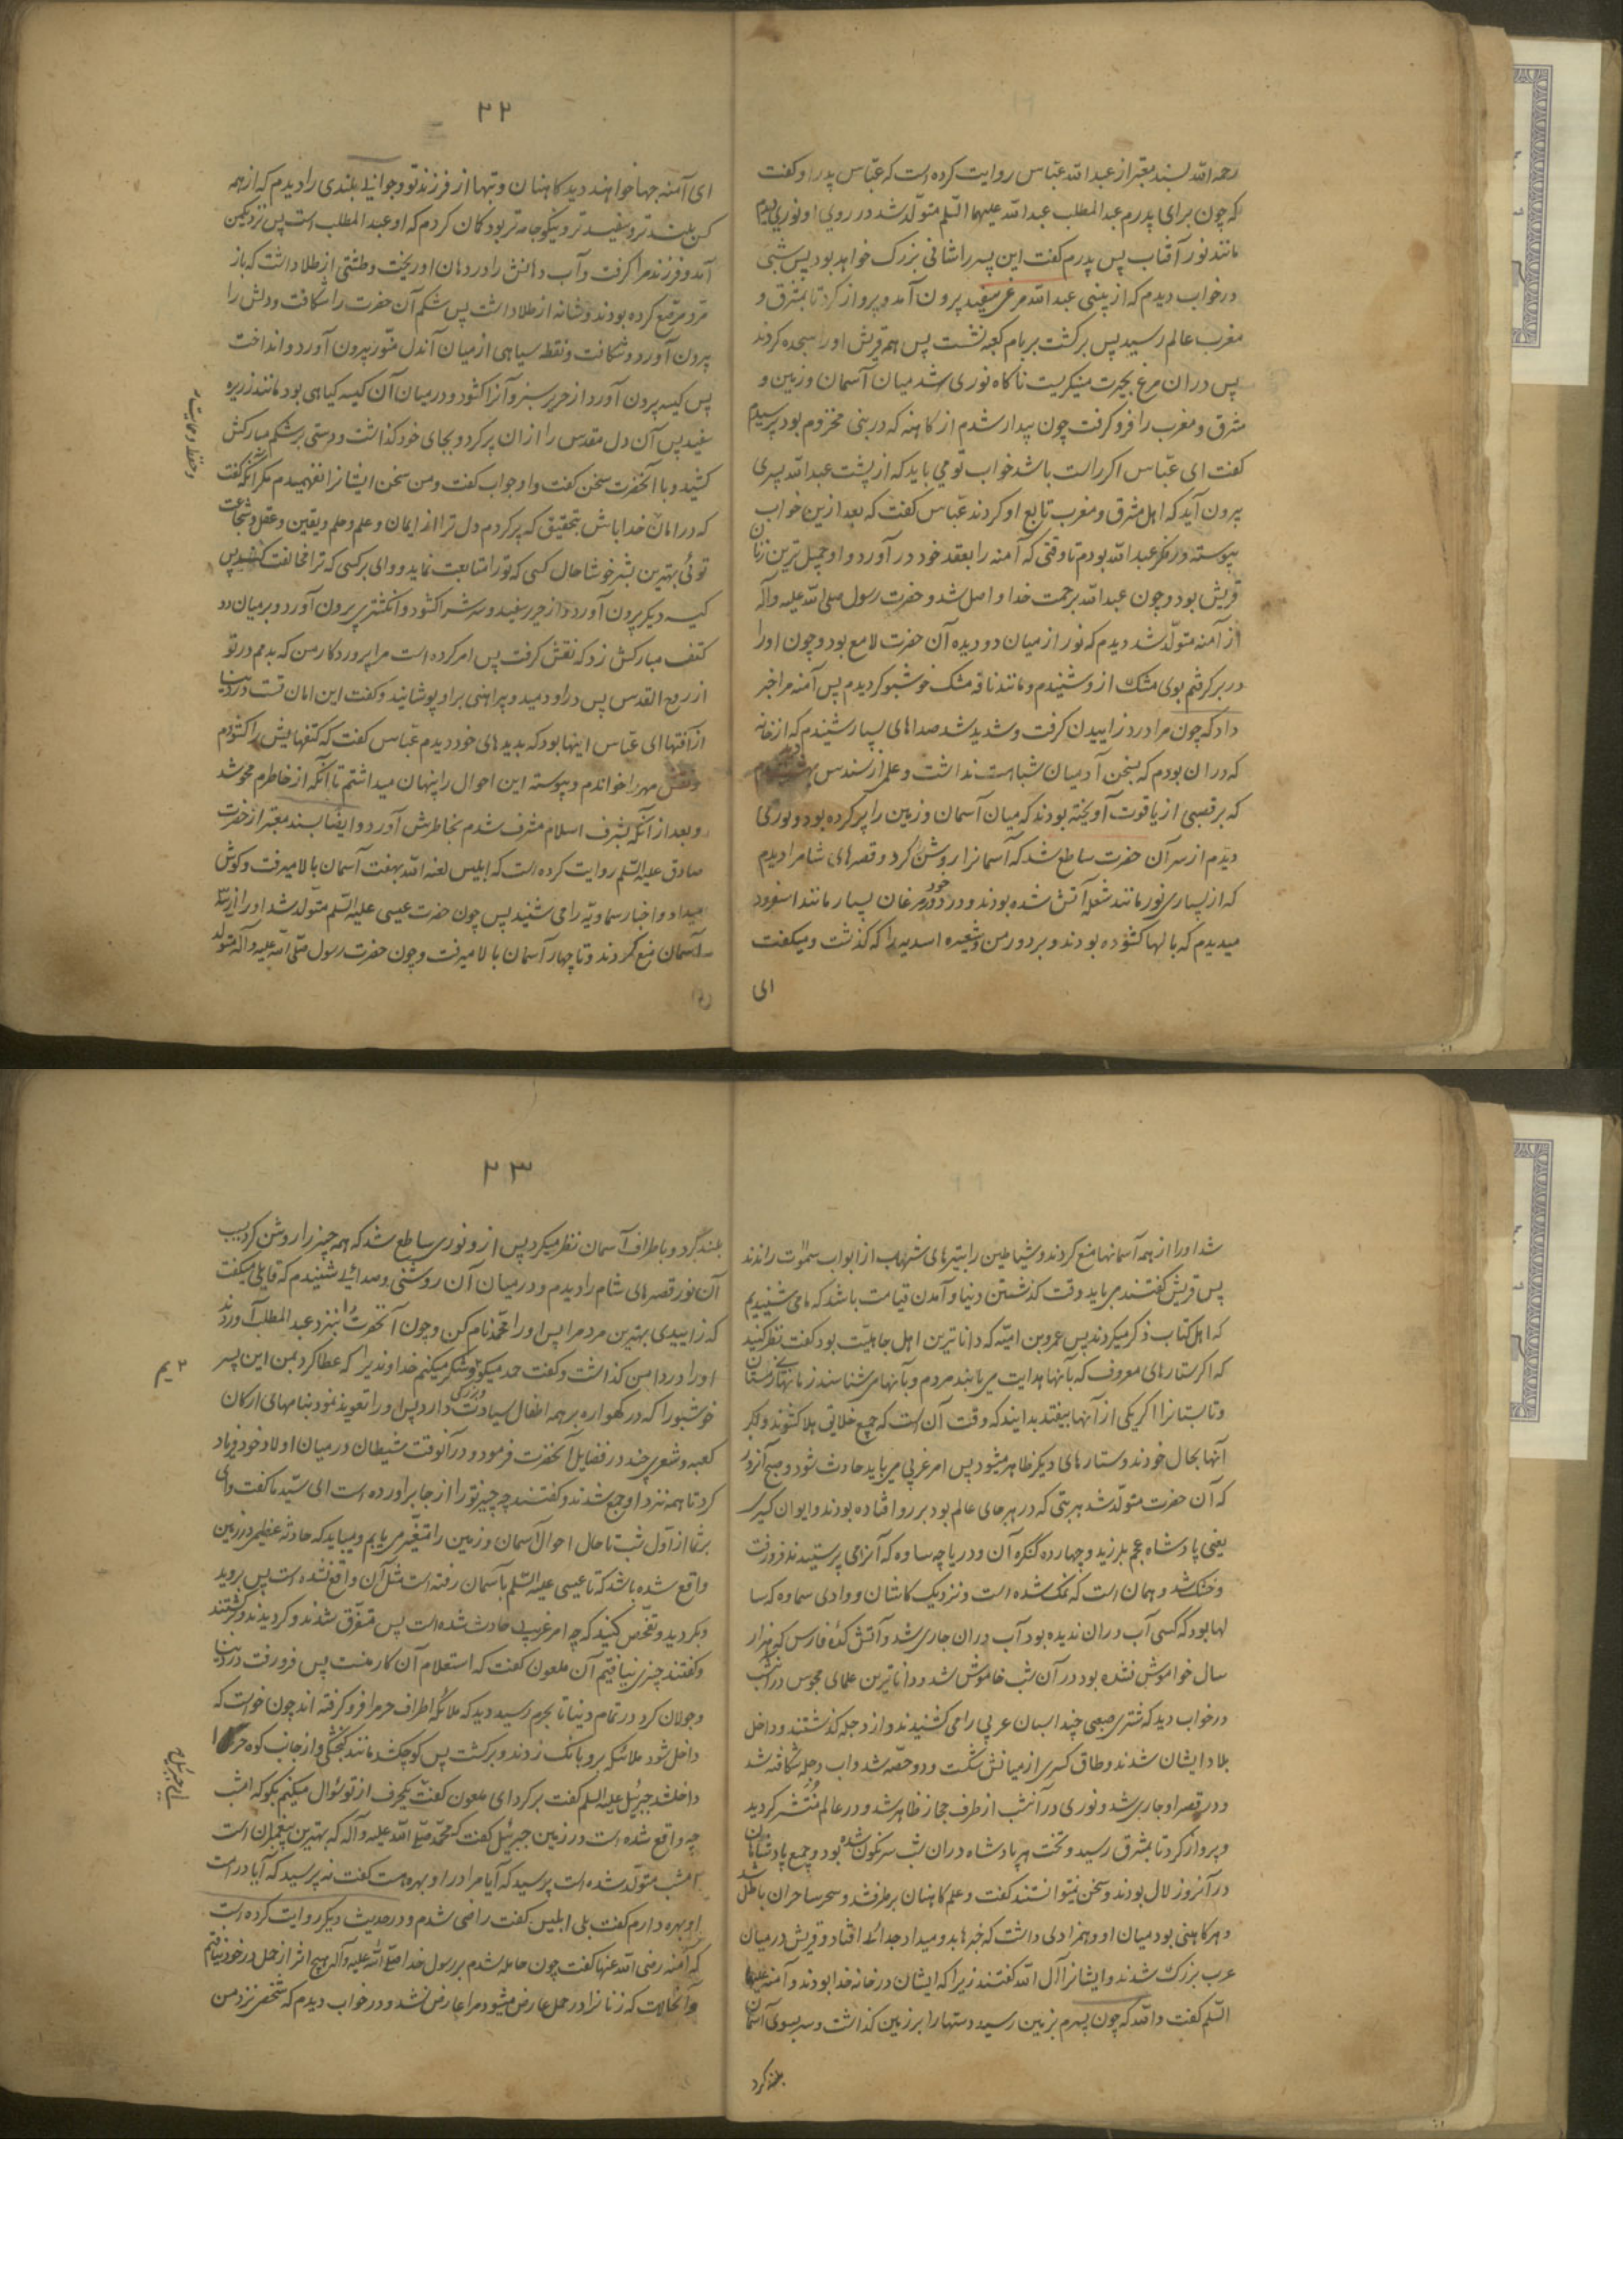 رحمه الله بسند معتبر از عبد الله عباس روایت کرده است که عباس پدر او گفت
که چون برای پدرم عبد المطلب عبد الله علیهما السلم متولّد شد در روی او نوری دیدم
مانند نور آفتاب پس پدرم گفت این پسر را شانی بزرک خواهد بود پس شبی
در خواب دیدم که از بینی عبد الله مرغی سفید پرون آمد و پرواز کرد تا بمشرق و
مغرب عالم رسید پس برکشت بر بام کعبه نشست پس همه قریش او را سجده کردند
پس در ان مرغ بحیرت مینکریست ناکاه نوری شد میان آسمان و زمین و
مشرق و مغرب را فرو کرفت چون بیدار شدم از کاهنه که در بنی مخزوم بود پرسیدم
کفت ای عبّاس اکر راست باشد خواب تو می باید که از پشت عبد الله پسری
پرون آید که اهل مشرق و مغرب تابع او کردند عبّاس کفت که بعد ازین خواب
پیوسته در فکر عبد الله بودم تا وقتی که آمنه را بعقد خود در آورد و او جمیل ترین زنان
قریش بود و چون عبد الله برحمت خدا واصل شد و حضرت رسول صلی الله علیه و آله
از آمنه متولّد شد دیدم که نور از میان دو دیده آن حضرت لامع بود و چون او را
در بر کرفتم بوی مشک از و شنیدم و مانند نافه مشک خوشبو کردیدم پس آمنه مرا خبر
داد که چون مرا درد زاییدن کرفت و شدید شد صداهای بسیار شنیدم که از خانه
که در ان بودم که بسخن آدمیان شباهت نداشت و علمی از سندس بهشت دیدم
که بر قصبی از یاقوت آویخته بودند که میان آسمان و زمین را پر کرده بود و نوری
دیدم از سر آن حضرت ساطع شد که آسمانرا روشن کرد و قصرهای شام را دیدم
که از بسیاری نور مانند شعله آتش شده بودند و در دور خود مرغان بسیار مانند اسفرود
میدیدم که بالها کشوده بودند و بر دور من و شعیره اسدیه را که کذشت و میکفت
ای
۲۲
ای آمنه چها خواهند دید کاهنان و بتها از فرزند تو و جوانی بلندی را دیدم که از همه
کس بلند تر و سفید تر و نیکو جامه تر بود کمان کردم که او عبد المطلب است پس نزدیک من
آمد و فرزند مرا کرفت و آب دهانش را در دهان او ریخت و طشتی از طلا داشت که باز
مرد مرصّع کرده بودند و شانه از طلا داشت پس شکم آن حضرت را شکافت و دلش را
پرون آورد و شکافت و نقطه سیاهی از میان آندل منوّر پرون آورد و انداخت
پس کیسه پرون آورد از حریر سبز و آنرا کشود و در میان آن کیسه کیاهی بود مانند زریره
سفید پس آن دل مقدس را از ان پر کرد و بجای خود کذاشت و دستی بر شکم مبارکش
کشید و با آنحضرت سخن کفت و او جواب کفت و من سخن ایشانرا نفهمیدم مکر آنکه کفت
که در امان خدا باش بتحقیق که پر کردم دل ترا از ایمان و علم و حلم و یقین و عقل و شجاعت
توئی بهترین بشر خوشا حال کسی که تو را متابعت نماید و وای بر کسی که ترا مخالفت کند پس
کیسه دیکر پرون آورد از حریر سفید و سرش را کشود و انکشتر پرون آورد و بر میان دو
کتف مبارکش زد که نقش کرفت پس امر کرده است مرا پروردکار من که بدمم در تو
از روح القدس پس در او دمید و پراهنی بر او پوشانید و کفت این امان تست در دنیا
از آفتها ای عبّاس اینها بود که بدیده های خود دیدم عبّاس کفت که کتفهایش را کشودم
و نقش مهر را خواندم و پیوسته این احوال را پنهان میداشتم تا آنکه از خاطرم محو شد
و بعد از آنکه بشرف اسلام مشرف شدم بخاطرش آورد و ایضا بسند معتبر از حضرت
صادق علیه السّلم روایت کرده است که ابلیس لعنه الله بهفت آسمان بالا میرفت و کوش
میداد و اخبار سماویّه را می شنید پس چون حضرت عیسی علیه السّلم متولّد شد او را از سه
آسمان منع کردند و تا چهار آسمان بالا میرفت و چون حضرت رسول صلّی الله علیه و آله متولّد
شد او را از همه آسمانها منع کردند و شیاطین را بتیرهای شهاب از ابواب سموٰت راندند
پس قریش کفتند می باید وقت کذشتن دنیا و آمدن قیامت باشد که ما می شنیدیم
که اهل کتاب ذکر میکردند پس عمرو بن امیّه که داناترین اهل جاهلیّت بود کفت نظر کنید
که اکر ستارهای معروف که بآنها هدایت می یابند مردم و بآنها می شناسند زمانهای زمستان
و تابستانرا اکر یکی از آنها بیفتد بدانید که وقت آن است که جمیع خلایق هلاک شوند و اکر
آنها بحال خودند و ستارهای دیکر ظاهر میشود پس امر غریبی می باید حادث شود و صبح آنروز
که آن حضرت متولّد شد هر بتی که در هر جای عالم بود بر رو افتاده بودند و ایوان کسری
یعنی پادشاه عجم بلرزید و چهارده کنکره آن و دریاچه ساوه که آنرا می پرستیدند فرو رفت
و خشک شد و همان است که نمک شده است و نزدیک کاشان و وادی سماوه که سا
لها بود که کسی آب در ان ندیده بود آب در ان جاری شد و آتش کده فارس که هزار
سال خواموش نشده بود در آن شب خاموش شد و داناترین علمای مجوس در آنشب
در خواب دید که شتری صعبی چند اسبان عربی را می کشیدند و از دجله کذشتند و داخل
بلاد ایشان شدند و طاق کسری از میانش شکست و دو حصّه شد و اب دجله شکافته شد
و در قصر او جاری شد و نوری در آنشب از طرف حجاز ظاهر شد و در عالم منتشر کردید
و پرواز کرد تا بمشرق رسید و تخت هر پادشاه در ان شب سرنکون شده بود و جمیع پادشاهان
در آنروز لال بودند و سخن نتوانستند کفت و علم کاهنان بر طرف شد و سحر ساحران باطل شد
و هر کاهنی بود میان او و همزادی داشت که خبرها بدو میداد جدائی افتاد و قریش در میان
عرب بزرک شدند و ایشانرا آل الله کفتند زیرا که ایشان در خانه خدا بودند و آمنه علیها
السّلم کفت و الله که چون پسرم بزمین رسید دستها را بر زمین کذاشت و سر بسوی آسمان
بلند کرد
۲۳
بلند کرد و باطراف آسمان نظر میکرد پس از و نوری ساطع شد که همه چیز را روشن کرد بسبب
آن نور قصرهای شام را دیدم و در میان آن روشنی و صدائی شنیدم که قایلی میکفت
که زاییدی بهترین مردم را پس او را محمّد نام کن و چون آنحضرت را بنزد عبد المطلب آوردند
او را در دامن کذاشت و کفت حمد میکویم و شکر میکنم خداوندیرا که عطا کرد بمن این پسر
خوشبو را که در کهواره بر همه اطفال سیادت و بزرکی دارد پس او را تعویذ نمود بنامهای ارکان
کعبه و شعری چند در فضایل آنحضرت فرمود و در آنوقت شیطان در میان اولاد خود فریاد
کرد تا همه نزد او جمع شدند و کفتند چه چیز تو را از جا براورده است ای سیّد ما کفت وای
بر شما از اوّل شب تا حال احوال آسمان و زمین را متغیّر می یابم و میباید که حادثه عظیمی در زمین
واقع شده باشد که تا عیسی علیه السّلم بآسمان رفته است مثل آن واقع نشده است پس بروید
و بکردید و تفحّص کنید که چه امر غریب حادث شده است پس متفرّق شدند و کردیدند و برکشتند
و کفتند چیزی نیافتیم آن ملعون کفت که استعلام آن کار منست پس فرو رفت در دنیا
و جولان کرد در تمام دنیا تا بحرم رسید دید که ملائکه اطراف حرم را فرو کرفته اند چون خواست که
داخل شود ملائکه بر او بانک زدند و برکشت پس کوچک شد مانند کنجشکی و از جانب کوه حرا
داخلشد جبرئیل علیه السّلم کفت برکرد ای ملعون کفت یکحرف از تو سؤال میکنم بکو که امشب
چه واقع شده است در زمین جبرئیل کفت که محمّد صلّی الله علیه و آله که بهترین پیغمبران است
امشب متولّد شده است پرسید که آیا مرا در او بهره هست کفت نه پرسید که آیا در امت
او بهره دارم کفت بلی ابلیس کفت راضی شدم و در حدیث دیکر روایت کرده است
که آمنه رضی الله عنها کفت چون حامله شدم برسول خدا صلّی الله علیه و آله هیچ اثر از حمل در خود نیافتم
و آنحالات که زنانرا در حمل عارض میشود مرا عارض نشد و در خواب دیدم که شخصی نزد من